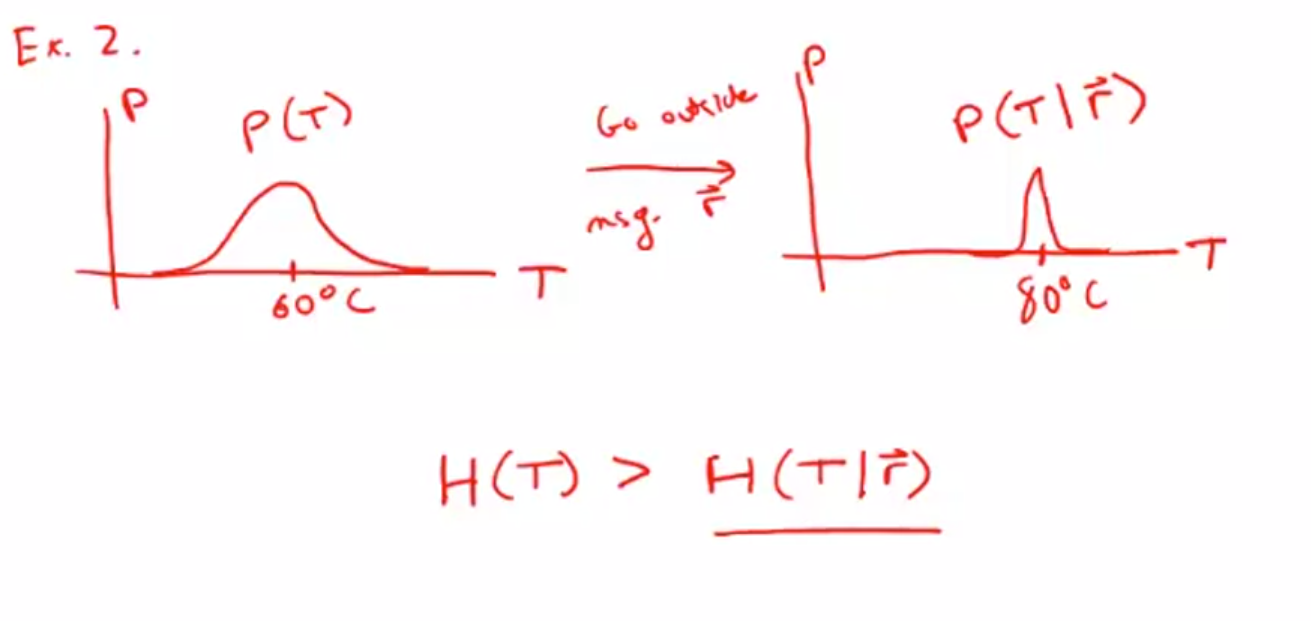 Ex. 2.
P
P(T)
60°C
T
Go outside
msg. r⃗
P
P(T|r⃗)
80°C
T
H(T) > H(T|r⃗)